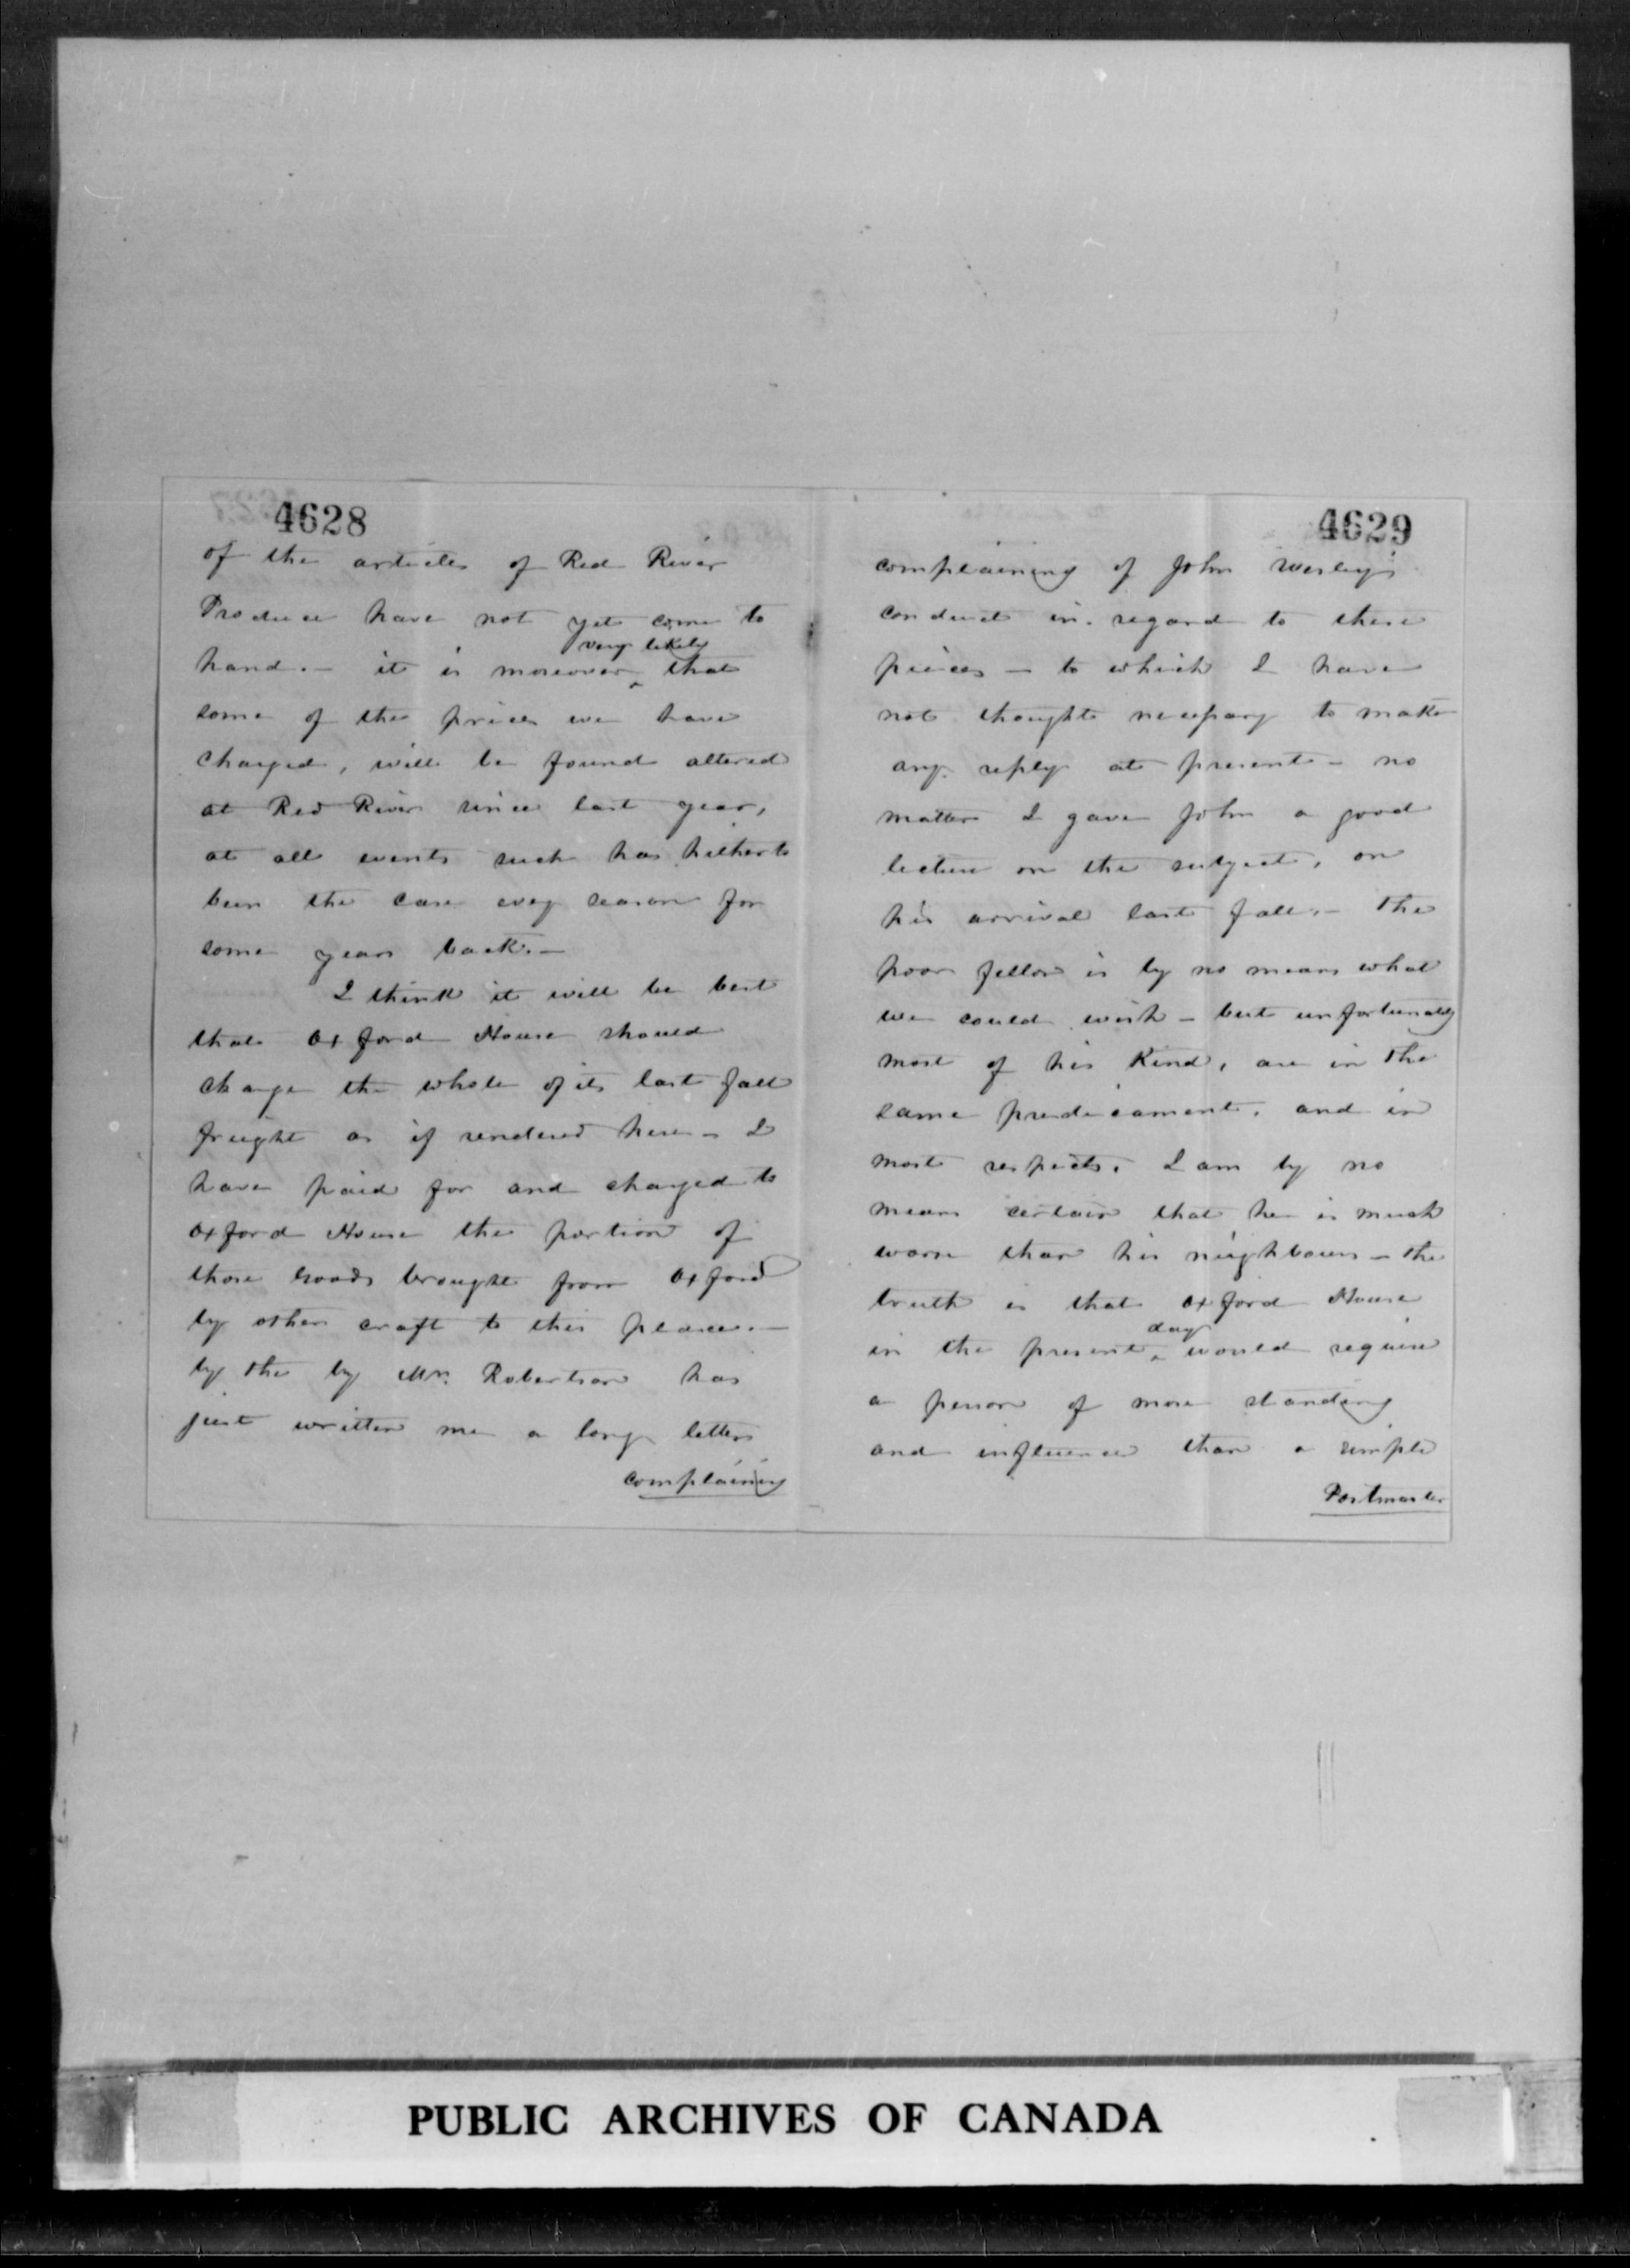 4628
of the articles of Red River
Produce have not yet come to
very likely
hand. – it is moreover ^ that
some of the prices we have
charged, will be found altered
at Red River since last year,
at all events such has hitherto
been the case every season for
some years back. –
I think it will be best
that Oxford House should
charge the whole of its last fall
freight as if rendered here – I
have paid for and charged to
Oxford House the portion of
those Goods brought from Oxford
by other craft to this place. –
by the by Mr. Robertson has
just written me a long letter
complaining
4629
complaining of John Wesley's
conduct in regard to these
pieces – to which I have
not thought necessary to make
any reply at present – no
matter I gave John a good
lecture on the subject, on
his arrival last fall. – The
poor fellow is by no means what
we could wish – but unfortunately
most of his Kind, are in the
same predicament, and in
most respects, I am by no
means certain that he is much
worse than his neighbours – the
truth is that Oxford House
day
in the present ^ would require
a person of more standing
and influence than a simple
Postmaster
PUBLIC ARCHIVES OF CANADA